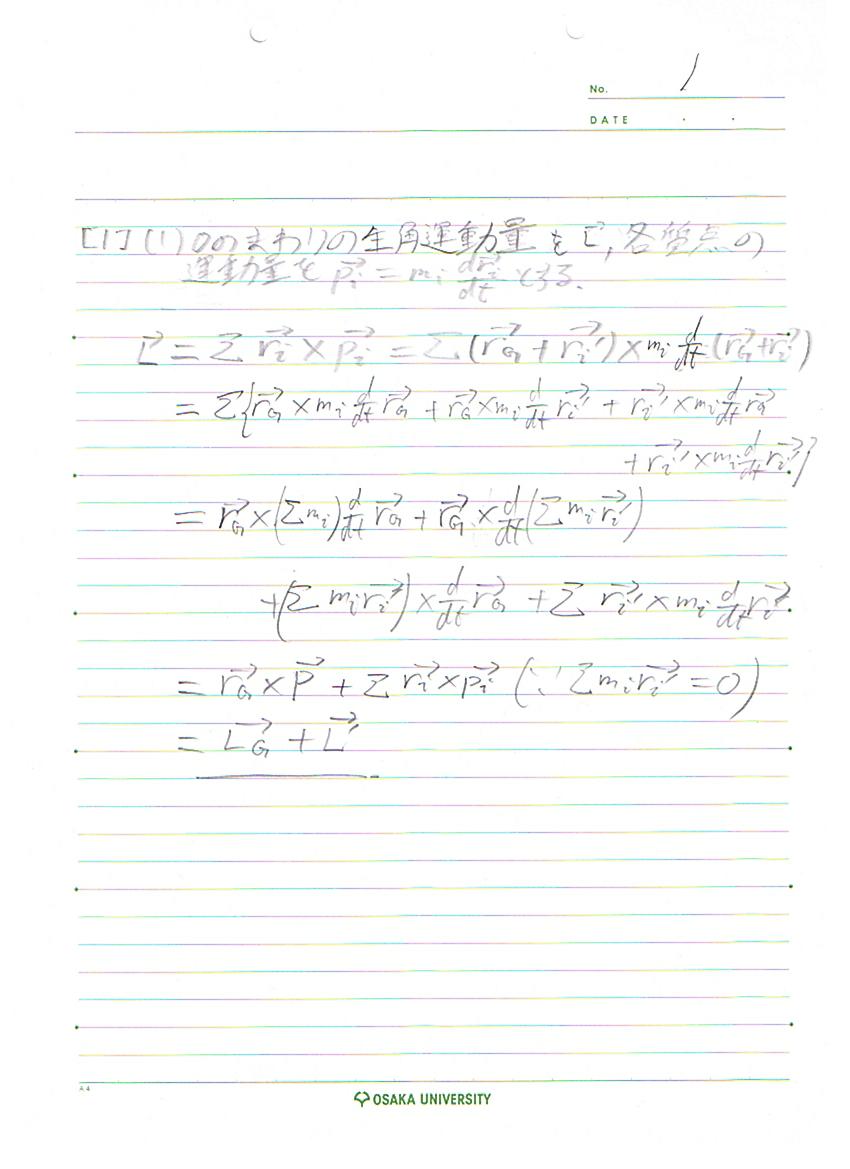 No. 1
DATE . .
[1] (1) Oのまわりの全角運動量を\vec{L}, 各質点の
運動量を \vec{p_i} = m_i \frac{d\vec{r_i}}{dt} とする.
\vec{L} = Σ \vec{r_i} × \vec{p_i} = Σ (\vec{r_G} + \vec{r_i'}) × m_i \frac{d}{dt} (\vec{r_G} + \vec{r_i'})
= Σ{\vec{r_G} × m_i \frac{d}{dt} \vec{r_G} + \vec{r_G} × m_i \frac{d}{dt} \vec{r_i'} + \vec{r_i'} × m_i \frac{d}{dt} \vec{r_G}
+ \vec{r_i'} × m_i \frac{d}{dt} \vec{r_i'}}
= \vec{r_G} × (Σ m_i) \frac{d}{dt} \vec{r_G} + \vec{r_G} × \frac{d}{dt} (Σ m_i \vec{r_i'})
+ (Σ m_i \vec{r_i'}) × \frac{d}{dt} \vec{r_G} + Σ \vec{r_i'} × m_i \frac{d}{dt} \vec{r_i'}
= \vec{r_G} × \vec{P} + Σ \vec{r_i'} × \vec{p_i'} (∵ Σ m_i \vec{r_i'} = 0)
= \vec{L_G} + \vec{L'}
A4
OSAKA UNIVERSITY